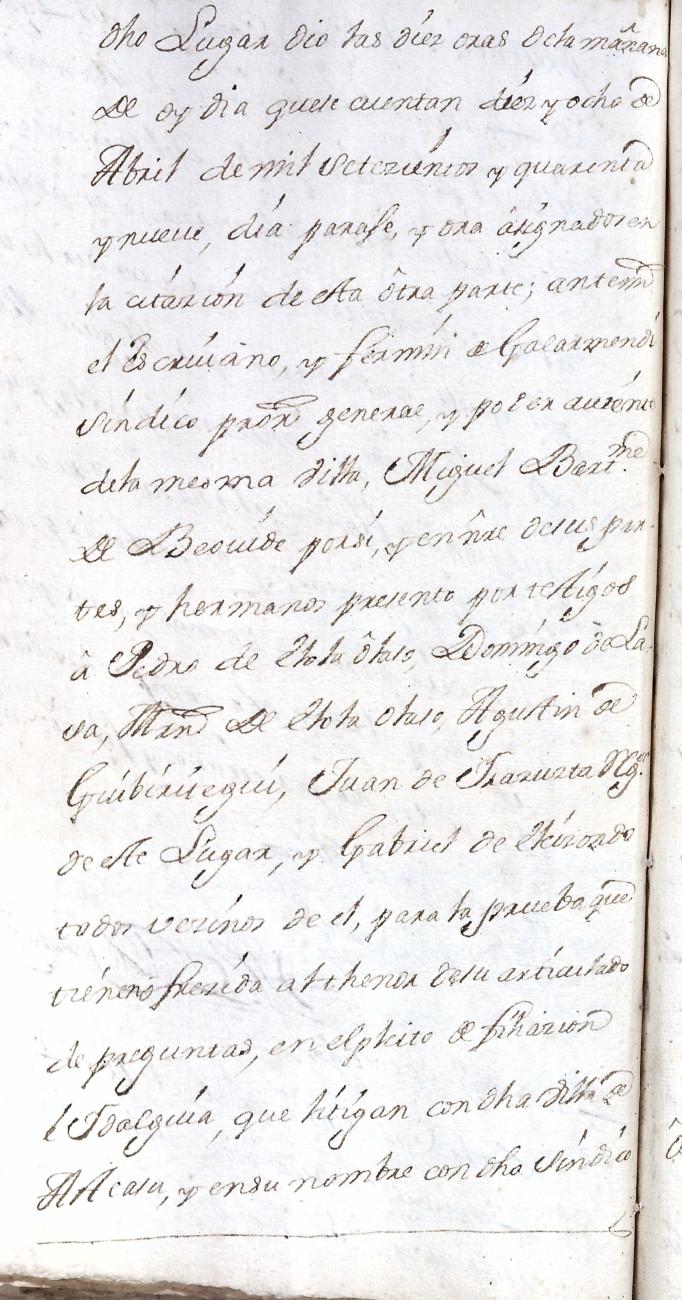 dho Lugar dio las diez oras de la mañana
de oy dia que se cuentan diez y ocho de
Abril de mil setezientos y quarenta
y nueve, dia parase, y ora asignados en
la citazion de esta otra parte; antemi
el Escrivano, y fermin de Gacarmendi
sindico pror general, y poder aviente
de la mesma villa, Miguel Bartme
de Beovide por si, y en nre de sus par-
tes, y hermanos presento por testigos
â Pedro de Olaso, Domingo de La-
sa, Mrn de Olaso, Agustin de
Guibirisegui, Juan de Irazuzta Regr
de este Lugar, y Gabriel de Elizondo
todos vezinos de el, para la prueba que
tienen ofrezida al thenor de su articulado
de preguntas, en el pleito de filiazion
e Idalguia, que litigan con dha villa de
Atasu, y en su nombre con dho sindico